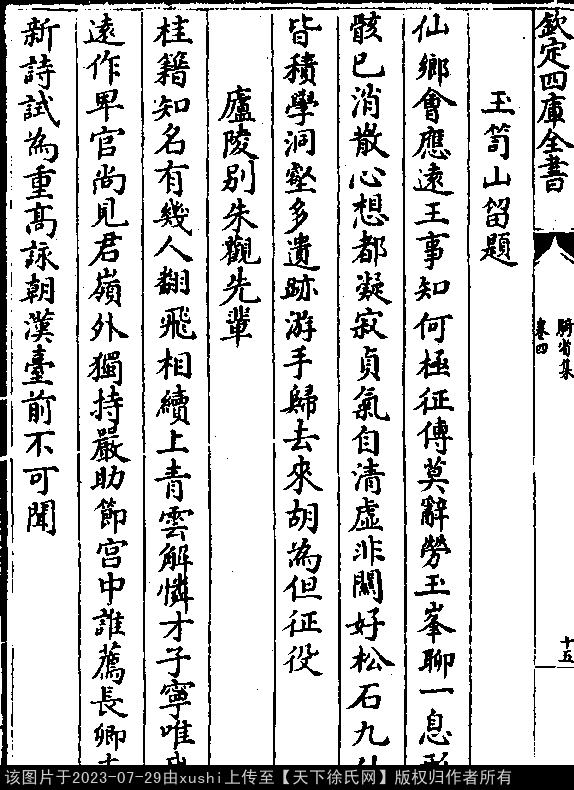 欽定四庫全書
騎省集
卷四
十五
玉笥山留題
仙鄉會應遠王事知何極征傳莫辭勞玉峯聊一息
骸已消散心想都凝寂貞氣自清虛非關好松石九
皆積學洞壑多遺跡游手歸去來胡為但征役
廬陵别朱觀先輩
桂籍知名有幾人翻飛相續上青雲解憐才子寧唯
遠作卑官尚見君嶺外獨持嚴助節宫中誰薦長卿
新詩試為重髙詠朝漢臺前不可聞
该图片于2023-07-29由xushi上传至【天下徐氏网】版权归作者所有